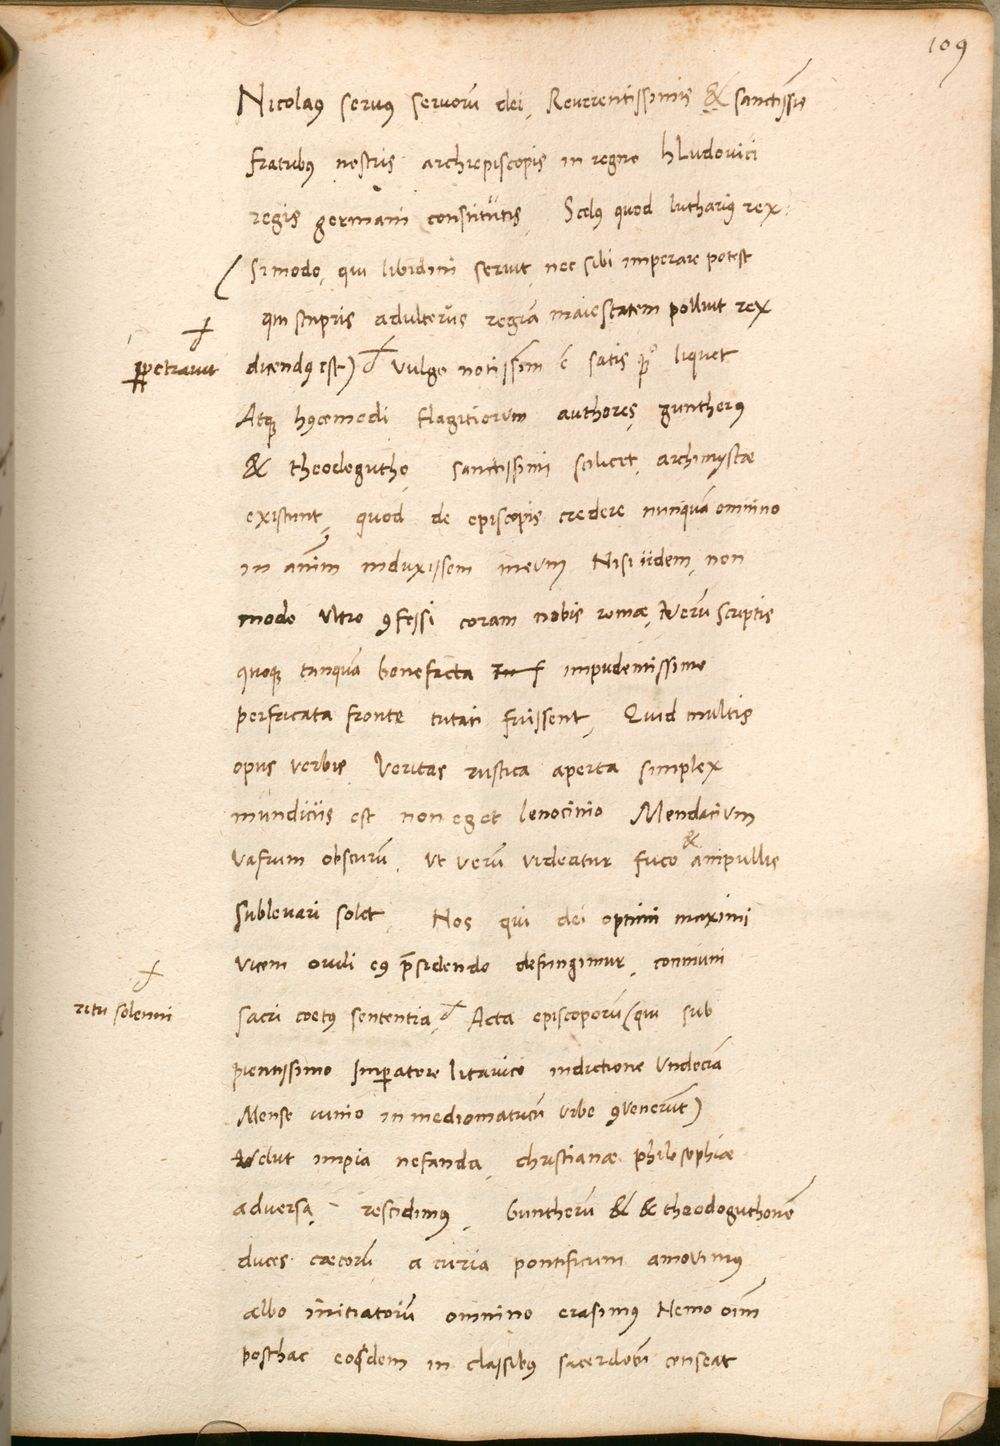 109
Nicolaus servus servorũ dei, Reverentissimis & sanctissis
fratribus nostris archiepiscopis in regno hLudovici
regis germani constitutis, Scelus quod lutharius rex
(Si modo, qui libidini servit, nec sibi imperare potest
qui stupris adulteriis regiam maiestatem polluit rex
perpetravit
dicendus est) vulgo notissim ẽ satis quo liquet
Atque huiusmodi flagitiorum authores, guntherus
& theodogutho, sanctissimi scilicet, archimystae
existunt, quod de episcopis credere nunquã omnino
in anĩm induxissem meum Nisi iidem, non
modo ultro 9fessi coram nobis romae, Verũ scriptis
quoque tanquã benefacta impudentissime
perfricata fronte tutati fuissent, Quid multis
opus verbis, Veritas rustica aperta simplex
mundiciis est non eget lenocinio Mendacium
vafrum obscurũ, ut verũ videatur fuco & ampullis
sublevari solet, Nos qui dei optimi maximi
vicem ovili eius p̃sidendo defungimur, communi
ritu solenni
sacri coetus sententia, Acta episcoporũ (qui sub
pientissimo Imperatore litavico indictione Undecĩa
Mense iunio in mediomatricũ urbe 9venerũt)
Velut impia nefanda, christianae philosophiae
adversa, rescidimus, Guntherũ & & theodoguthonẽ
duces caecorũ, a curia pontificum amovimus
albo initiatorũ omnino erasimus Nemo oĩm
posthac eosdem in classibus sacerdotũ censeat